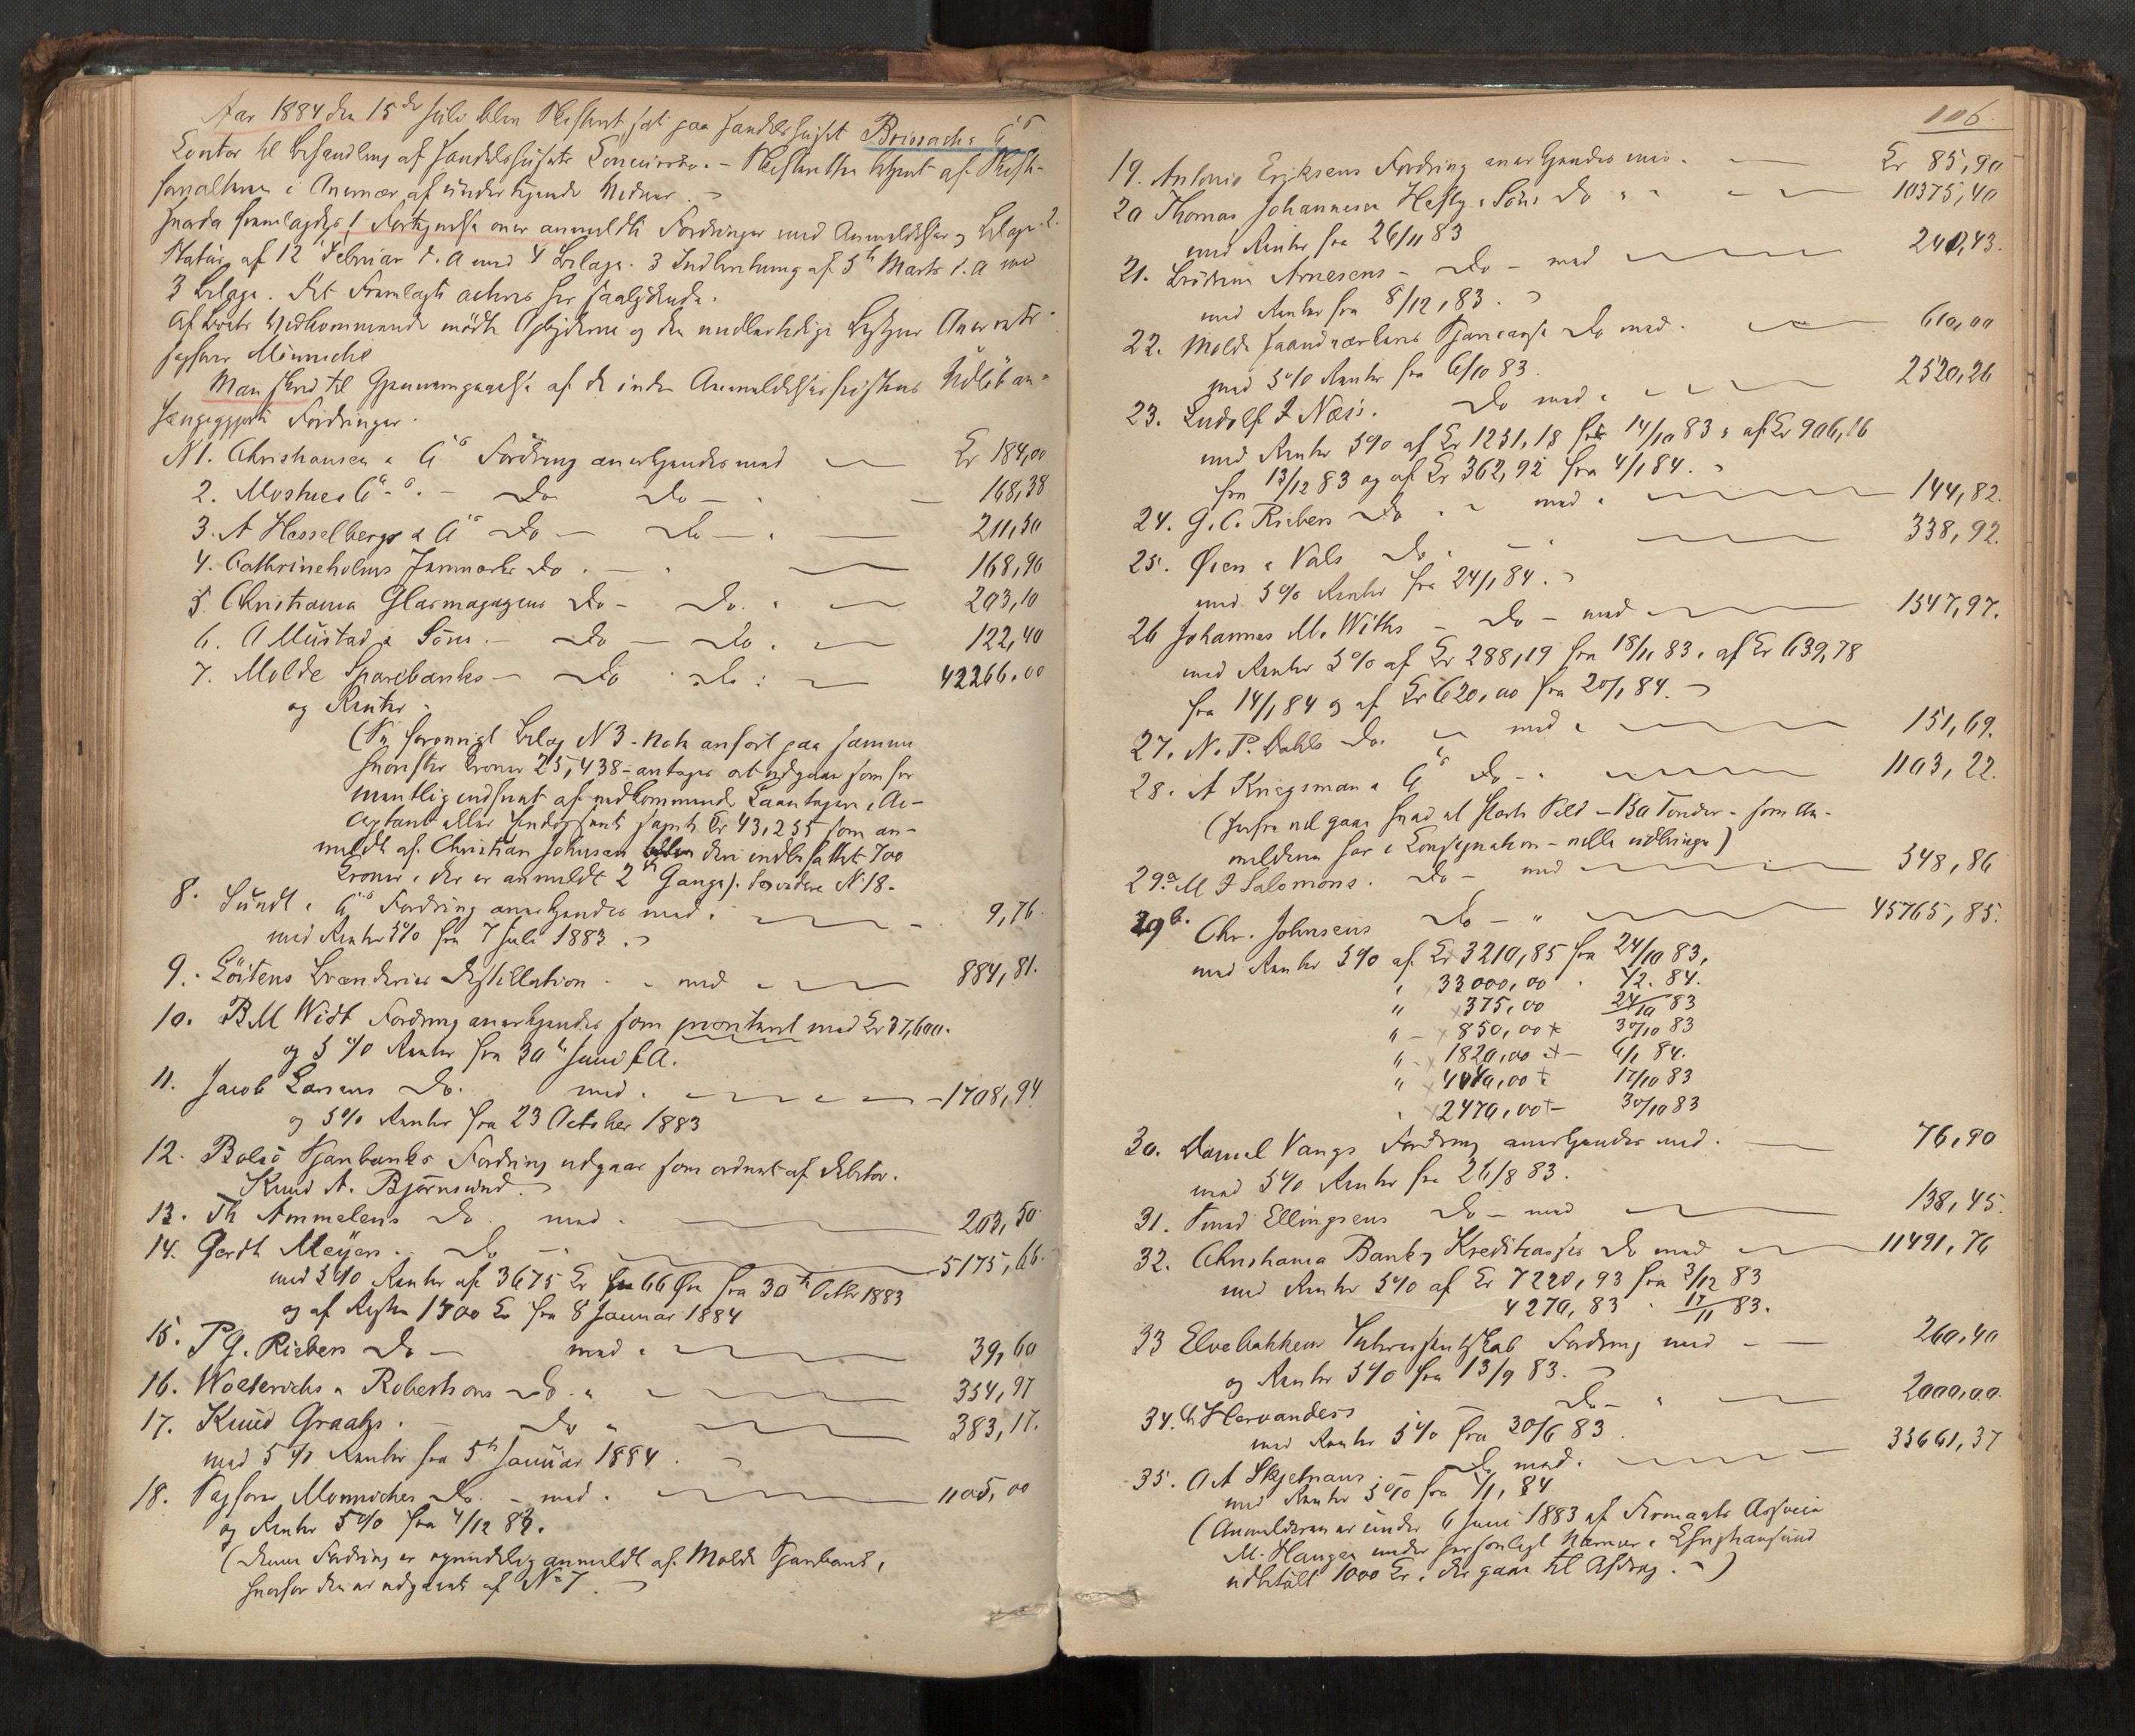 Aar 1884 den 15de Juli blev Skifteret sat paa Handelshuset Brissachs & Co
Contor til Behandling af Handelshusets Concursbo. – Skifteretten betjent af Skifte-
forvalteren i Overvær af undertegnede Vidner.
Hvorda fremlagdes 1 Fortegnelse over anmeldte Fordringer med Anmeldelser og Bilage 2.
Status af 12 Februar d. A med 4 Bilage. 3 Indberetning af 5te Marts d. A med
3 Bilage. Det Fremlagte acteres her saalydende.
Af Boets Vedkommende mødte og den midlertidige Bestyrer Overrets-
sagfører Münniche
Man skred til Gjennemgaaelse af de inden Anmeldelsesfristens Udløb an-
hængiggjorte Fordringer.
N 1. Christiansen & Co Fordring anerkjendes med Kr 184,00
2. Mostues Co. – Do Do – 168,38
3. A Hesselbergs & Co Do – Do – 211,50
4. Cathrineholms Jernværks Do. – 168,90
5. Christiania Glasmagazins Do – Do. 203,10
6. O Mustad & Söns. – Do – Do. 122,40
7. Molde Sparebanks – Do Do 42266,00
og Renter.
Bilag N 3 – Note anført paa samme
Kroner 25,438 – antages at udgaar som for
af vedkommende Laantagere, Ac-
ceptant eller Endossent samt Kr 43,255 som an-
meldt af Christian Johnsen deri indbefattet 700
Kroner, der er anmeldt 2de Gange). See videre N 18 –
8. Sundt & Co Fordring anerkjendes med 9,76.
med Renter 5% fra 7 Juli 1883.
9. Löitens Brænderies Destillation – med 884,81.
10. B M Widt Fordring anerkjendes som prioriteret med Kr 37,600.
og 5 % Renter fra 30te Juni f A.
11. Jacob Larsens Do. med. – 1708,94
og 5% Renter fra 23 October 1883
12. Bolsö Sparebanks Fordring udgaar som ordnet af Debitor.
Knud A. Björnsund.
13. Th Ammelens Do. med. 203,50
14. Gerdt Meÿers. Do – 5175,66.
med 5% Renter af 3675 Kr 66 Øre fra 30te Octbr 1883
og af Resten 1500 Kr fra 8 Januar 1884
15. P G. Riebers Do – med 39,60
16. Wolterichs & Robertsons Do. 354,97
17. Knud Graahs. – Do 383,17.
med 5 % Renter fra 5te Januar 1884.
18. Sagfører Münniches Do. – med. 1105,00
og Renter 5% fra 4/12 83.
(Denne Fordring er oprindelig anmeldt af Molde Sparebank,
hvorfor den er udgaaet af No 7.
106.
19. Antonio Eriksens Fordring anerkjendes med. Kr 85,90
20 Thomas Johannesen Heftye & Söns Do 10375,40
med Renter fra 26/11 83
21. Brödrene Arnesens – Do – med 240,43.
med Renter fra 8/12, 83.
22. Molde Haandværkeres Do med. 610,00
med 5% Renter fra 6/10 83.
23. Ludolf J Næss. Do med 2520,26
med Renter 5% af Kr 1251,18 fra 14/10 83, af Kr 906,16
fra 13/12 83 og af Kr 362,92 fra 4/1 84.
24. G. C. Riebers Do med 144,82.
25. Øien & Vals Do. 338,92.
med 5% Renter fra 24/1 84.
26 Johannes M. Withs – Do – med 1547,97.
med Renter 5% af Kr 288,19 fra 18/11 83, af Kr 639,78
fra 14/1 84 og af Kr 620,00 fra 20/1 84.
27. N. P. Dahls Do. med 151,69.
28. A Kriegsman & Co Do 1103,22.
( – som An-
melderen har i Consignation – )
29a M J Salomons. Do – med 348,86
29b. Chr. Johnsens Do – " 45765,85.
med Renter 5% af Kr 3210,85 fra 24/10 83,
" 33000,00 " 4/2. 84.
" 375,00 24/10 83
" – 850,00 30/10 83
" – 1820,00 – 6/1 84.
" 4040,00 17/10 83
" 2470,00 – 30/10 83
30. Daniel Vangs Fordring anerkjendes med. 76,90
med 5% Renter fra 26/8 83.
31. Knud Ellingsens Do – med 138,45.
32. Christiania Bank og Kreditkasses Do med 11491,76
med Renter 5% af Kr 7220,93 fra 3/12 83
4270,83 " 17/11 83.
33 Elvebakkens Fordring med – 260,40
og Renter 5% fra 13/9 83.
34. Hervandess Do – 2000,00.
med Renter 5% fra 30/6 83.
35. O A Skjelnans. – Do med. 33661,37
med Renter 5% fra 1/1, 84
(Anmelderen er under 6 Juni 1883 af Firmaets
M. Hauger under personligt Nærvær i Christiansund
udbetalt 1000 Kr. der gaar til Afdrag.)